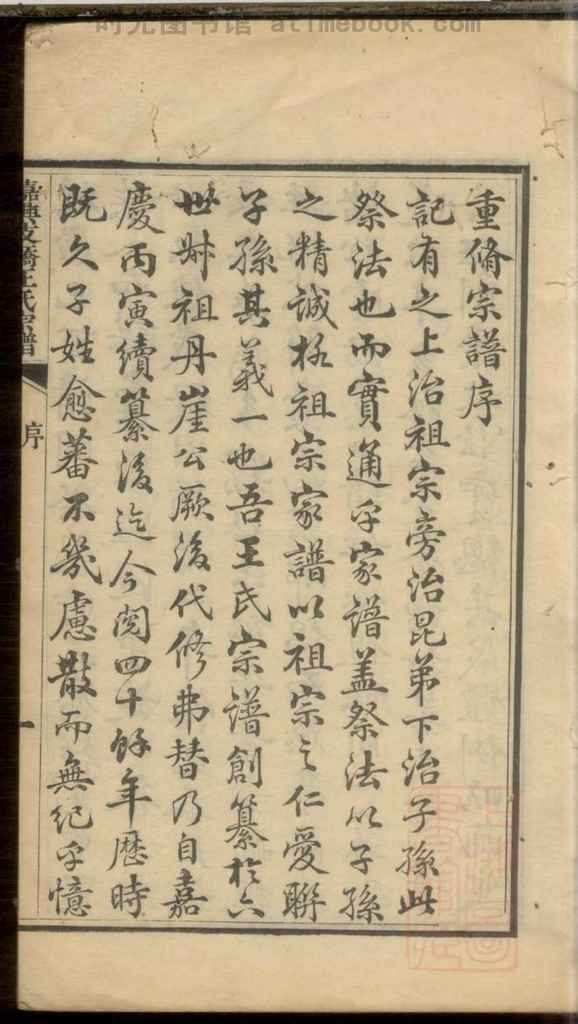 时光图书馆 atimebook.com
重脩宗譜序
記有之上治祖宗旁治昆弟下治子孫此
祭法也而實通乎家譜盖祭法以子孫
之精誠格祖宗家譜以祖宗之仁愛聯
子孫其義一也吾王氏宗譜創纂於六
世時祖丹崖公厥後代修弗替乃自嘉
慶丙寅續纂後迄今閱四十餘年歷時
既久子姓愈蕃不幾慮散而無紀乎憶
王氏宗譜
序
一